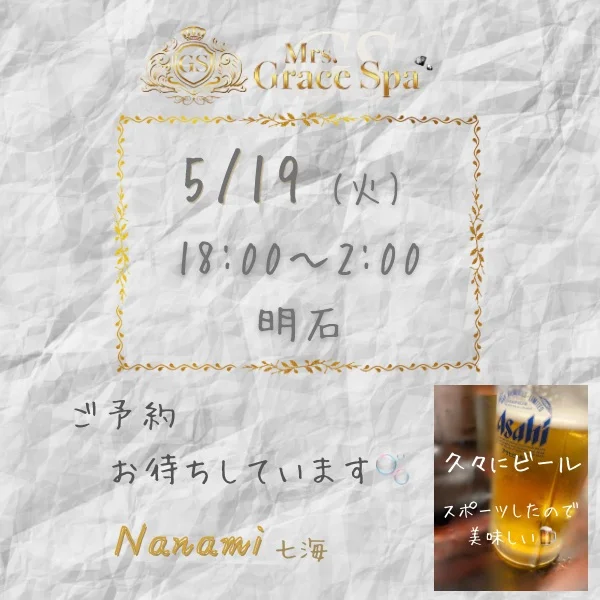 GS
Mrs.
Grace Spa
5/19 (火)
18:00～2:00
明石
ご予約
お待ちしています
Asahi
久々にビール
スポーツしたので
美味しい
Nanami 七海